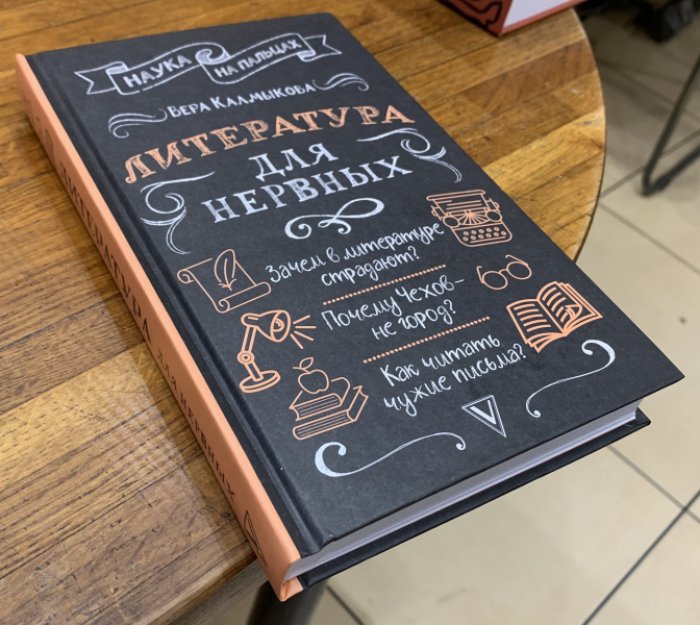 НАУКА НА ПАЛЬЦАХ
ВЕРА КАЛМЫКОВА
ЛИТЕРАТУРА
ДЛЯ
НЕРВНЫХ
Зачем в литературе
страдают?
Почему Чехов–
не город?
Как читать
чужие письма?
V
ЛИТЕРАТУРА ДЛЯ НЕРВНЫХ